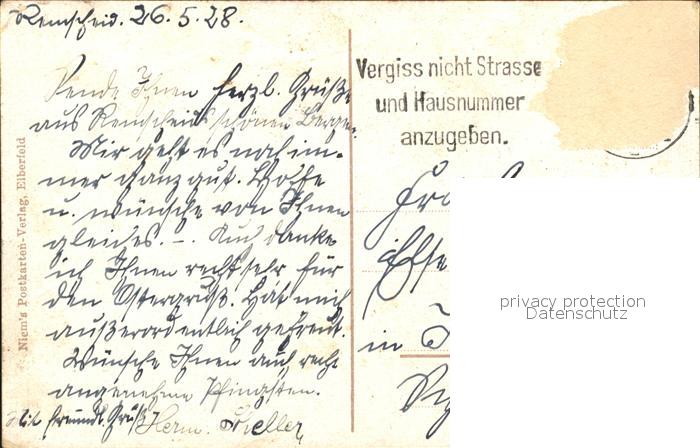 Remscheid. 26.5.28.
Sende Ihnen herzl. Grüße
aus Remscheids schönen Bergen.
Mir geht es noch im-
mer ganz gut. Hoffe
u. wünsche von Ihnen
gleiches. –. Auch danke
ich Ihnen recht sehr für
den Ostergruß. Hat mich
außerordentlich gefreut.
Wünsche Ihnen auch recht
angenehme Pfingsten.
Mit freundl. Gruß Herm.
Niem's Postkarten-Verlag, Elberfeld
Vergiss nicht Strasse
und Hausnummer
anzugeben.
in
privacy protection
Datenschutz